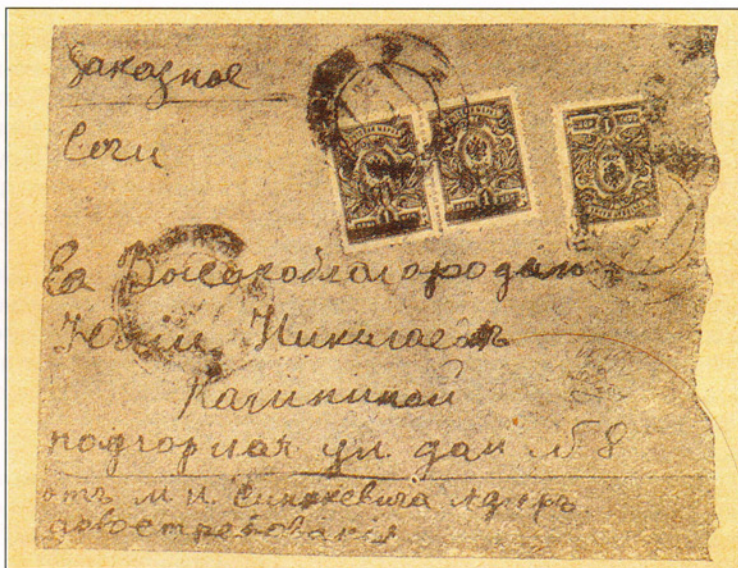 Заказное
Сочи
Ея Высокоблагородию
Юліи Николаевнѣ
Калининой
подгорная ул. дом №8
отъ М. И. Синкевича Адлеръ
до востребованія